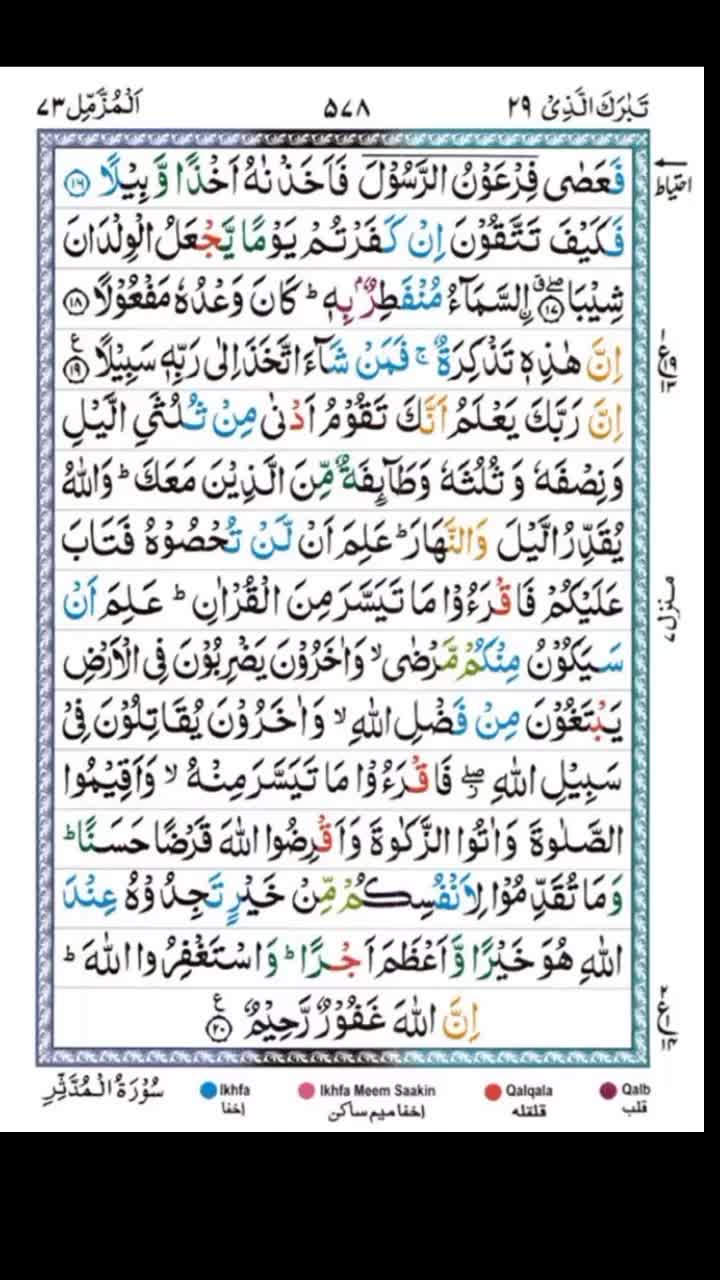 تَبٰرَكَ الَّذِىْ ٢٩ ۵۷۸ اَلْمُزَّمِّل ۷۳
احتیاط
فَعَصٰى فِرْعَوْنُ الرَّسُوْلَ فَاَخَذْنٰهُ اَخْذًا وَّبِيْلًا ۝۱۶
فَكَيْفَ تَتَّقُوْنَ اِنْ كَفَرْتُمْ يَوْمًا يَّجْعَلُ الْوِلْدَانَ
شِيْبَا ۝۱۷ۖق اۨلسَّمَآءُ مُنْفَطِرٌۢ بِهٖ ؕ كَانَ وَعْدُهٗ مَفْعُوْلًا ۝۱۸
اِنَّ هٰذِهٖ تَذْكِرَةٌ ۚ فَمَنْ شَآءَ اتَّخَذَ اِلٰى رَبِّهٖ سَبِيْلًا ۝۱۹ع
۱
ع۱۹
۱۳
اِنَّ رَبَّكَ يَعْلَمُ اَنَّكَ تَقُوْمُ اَدْنٰى مِنْ ثُلُثَىِ الَّيْلِ
وَنِصْفَهٗ وَثُلُثَهٗ وَطَآئِفَةٌ مِّنَ الَّذِيْنَ مَعَكَ ؕ وَاللّٰهُ
يُقَدِّرُ الَّيْلَ وَالنَّهَارَ ؕ عَلِمَ اَنْ لَّنْ تُحْصُوْهُ فَتَابَ
عَلَيْكُمْ فَاقْرَءُوْا مَا تَيَسَّرَ مِنَ الْقُرْاٰنِ ؕ عَلِمَ اَنْ
منزل ۷
سَيَكُوْنُ مِنْكُمْ مَّرْضٰى ۙ وَاٰخَرُوْنَ يَضْرِبُوْنَ فِى الْاَرْضِ
يَبْتَغُوْنَ مِنْ فَضْلِ اللّٰهِ ۙ وَاٰخَرُوْنَ يُقَاتِلُوْنَ فِىْ
سَبِيْلِ اللّٰهِ ۖؗ فَاقْرَءُوْا مَا تَيَسَّرَ مِنْهُ ۙ وَاَقِيْمُوا
الصَّلٰوةَ وَاٰتُوا الزَّكٰوةَ وَاَقْرِضُوا اللّٰهَ قَرْضًا حَسَنًا ؕ
وَمَا تُقَدِّمُوْا لِاَنْفُسِكُمْ مِّنْ خَيْرٍ تَجِدُوْهُ عِنْدَ
اللّٰهِ هُوَ خَيْرًا وَّاَعْظَمَ اَجْرًا ؕ وَاسْتَغْفِرُوا اللّٰهَ ؕ
اِنَّ اللّٰهَ غَفُوْرٌ رَّحِيْمٌ ۝۲۰ع
۲
ع۱
۱۴
Qalb Qalqala Ikhfa Meem Saakin Ikhfa سُوْرَةُ الْمُدَّثِّرِ
قلب قلقله اخفا میم ساکن اخفا